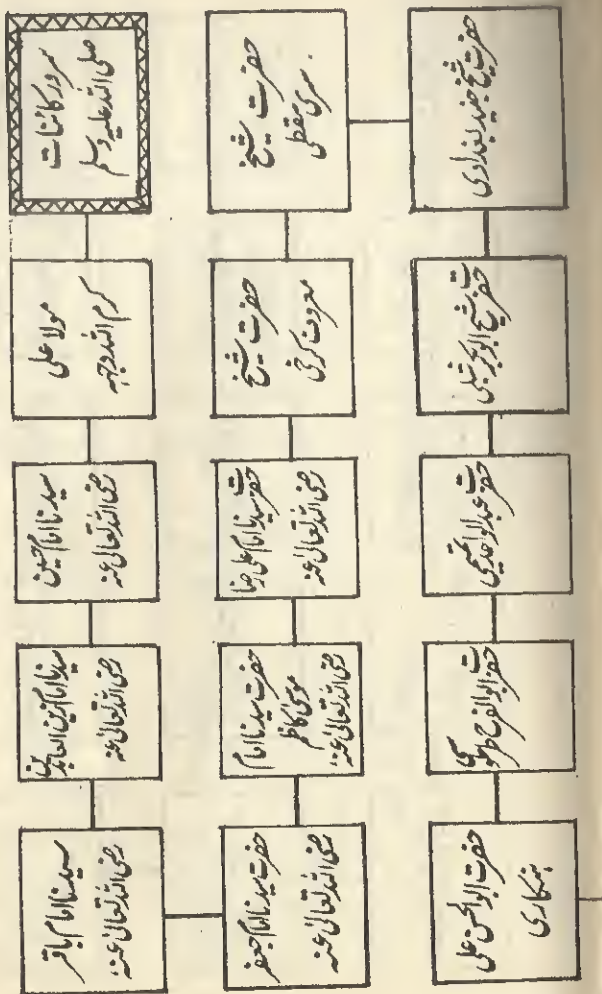 سرور کائنات
صلی اللہ علیہ وسلم
مولا علی
کرم اللہ وجہہ
سیدنا امام حسین
رضی اللہ تعالیٰ عنہ
سیدنا امام زین العابدین
رضی اللہ تعالیٰ عنہ
سیدنا امام باقر
رضی اللہ تعالیٰ عنہ
حضرت سیدنا امام جعفر
رضی اللہ تعالیٰ عنہ
حضرت سیدنا امام
موسیٰ کاظم
رضی اللہ تعالیٰ عنہ
حضرت سیدنا امام علی رضا
رضی اللہ تعالیٰ عنہ
حضرت شیخ
معروف کرخی
حضرت شیخ
سری سقطی
حضرت شیخ جنید بغدادی
حضرت شیخ ابوبکر شبلی
حضرت عبدالواحد تمیمی
حضرت ابوالفرح طرطوسی
حضرت ابوالحسن علی
ہنکاری